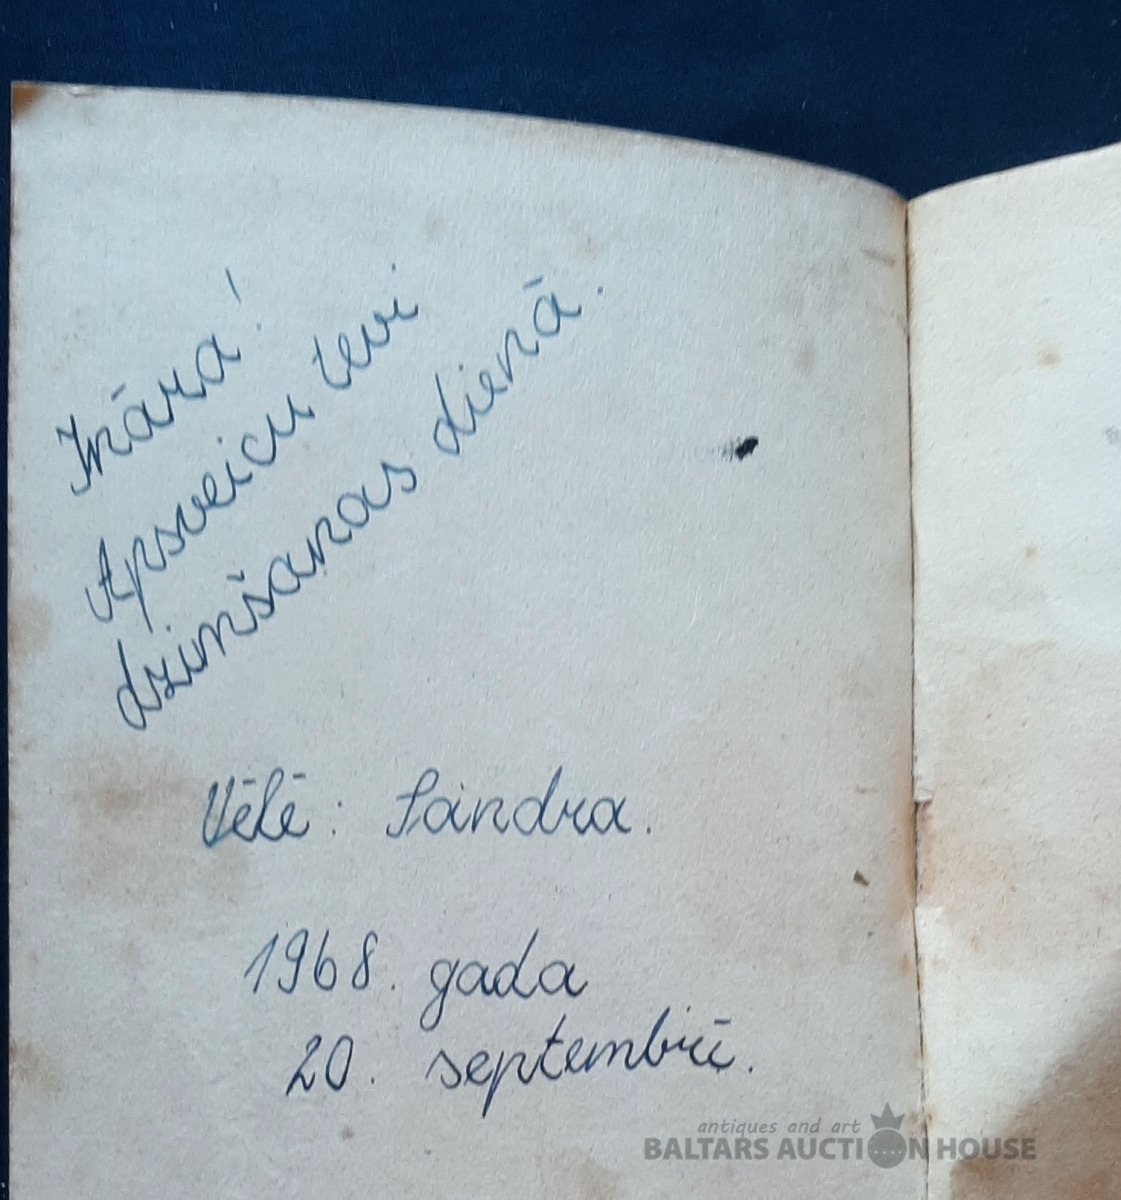 Ināra!
Apsveicu tevi
dzimšanas dienā.
Vēlē: Sandra.
1968. gada
20. septembrī.
antiques and art
BALTARS AUCTION HOUSE